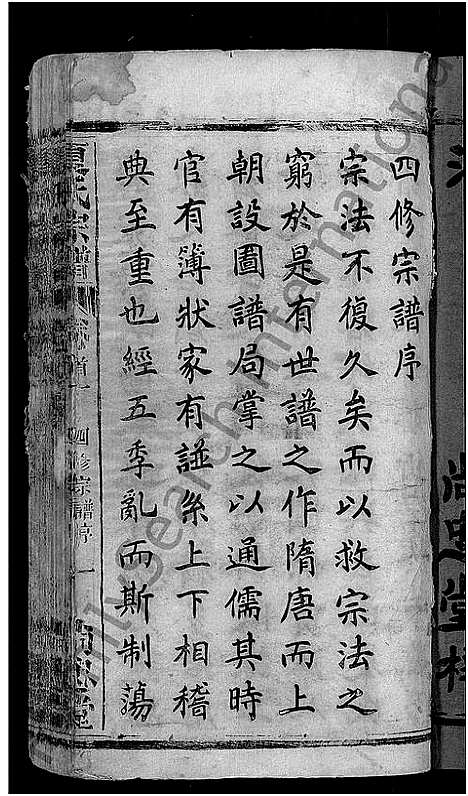 四修宗譜序
宗法不復久矣而以救宗法之
窮於是有世譜之作隋唐而上
朝設圖譜局掌之以通儒其時
官有簿狀家有譜系上下相稽
典至重也經五季亂而斯制蕩
氏宗譜
卷首一
四修宗譜序
一
尚忠堂
尚忠堂
FamilySearch International